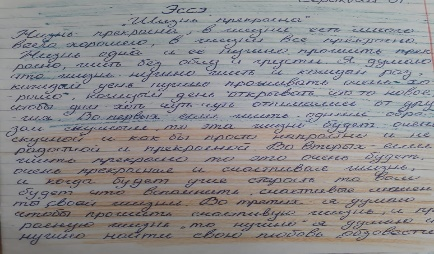 Эссэ
"Жизнь прекрасна"
Жизнь прекрасна, в жизни есть много
всего хорошего, в жизни все прекрасно.
Жизнь одна и ее нужно прожить прек-
расно, жить без обид и грусти. Я думаю
что жизнь нужно жить и каждый раз
каждый день нужно проживать очень хо-
рошо. Каждый день открывать что то новое
чтобы дни хоть чуть-чуть отличались от дру-
гих. Во первых если жить одним обра-
зом скучным то эта жизнь будет очень
скучной и как бы просто напрасно и не
радостной и прекрасной. Во вторых - если
жить прекрасно то это очень будет
очень прекрасная и счастливая жизнь,
и когда будет уже старым то
будет что вспомнить, счастливые момен-
ты своей жизни. Во третих я думаю
чтобы прожить счастливую жизнь, и прек-
расную жизнь, то нужно я думаю
нужно найти свою любовь,